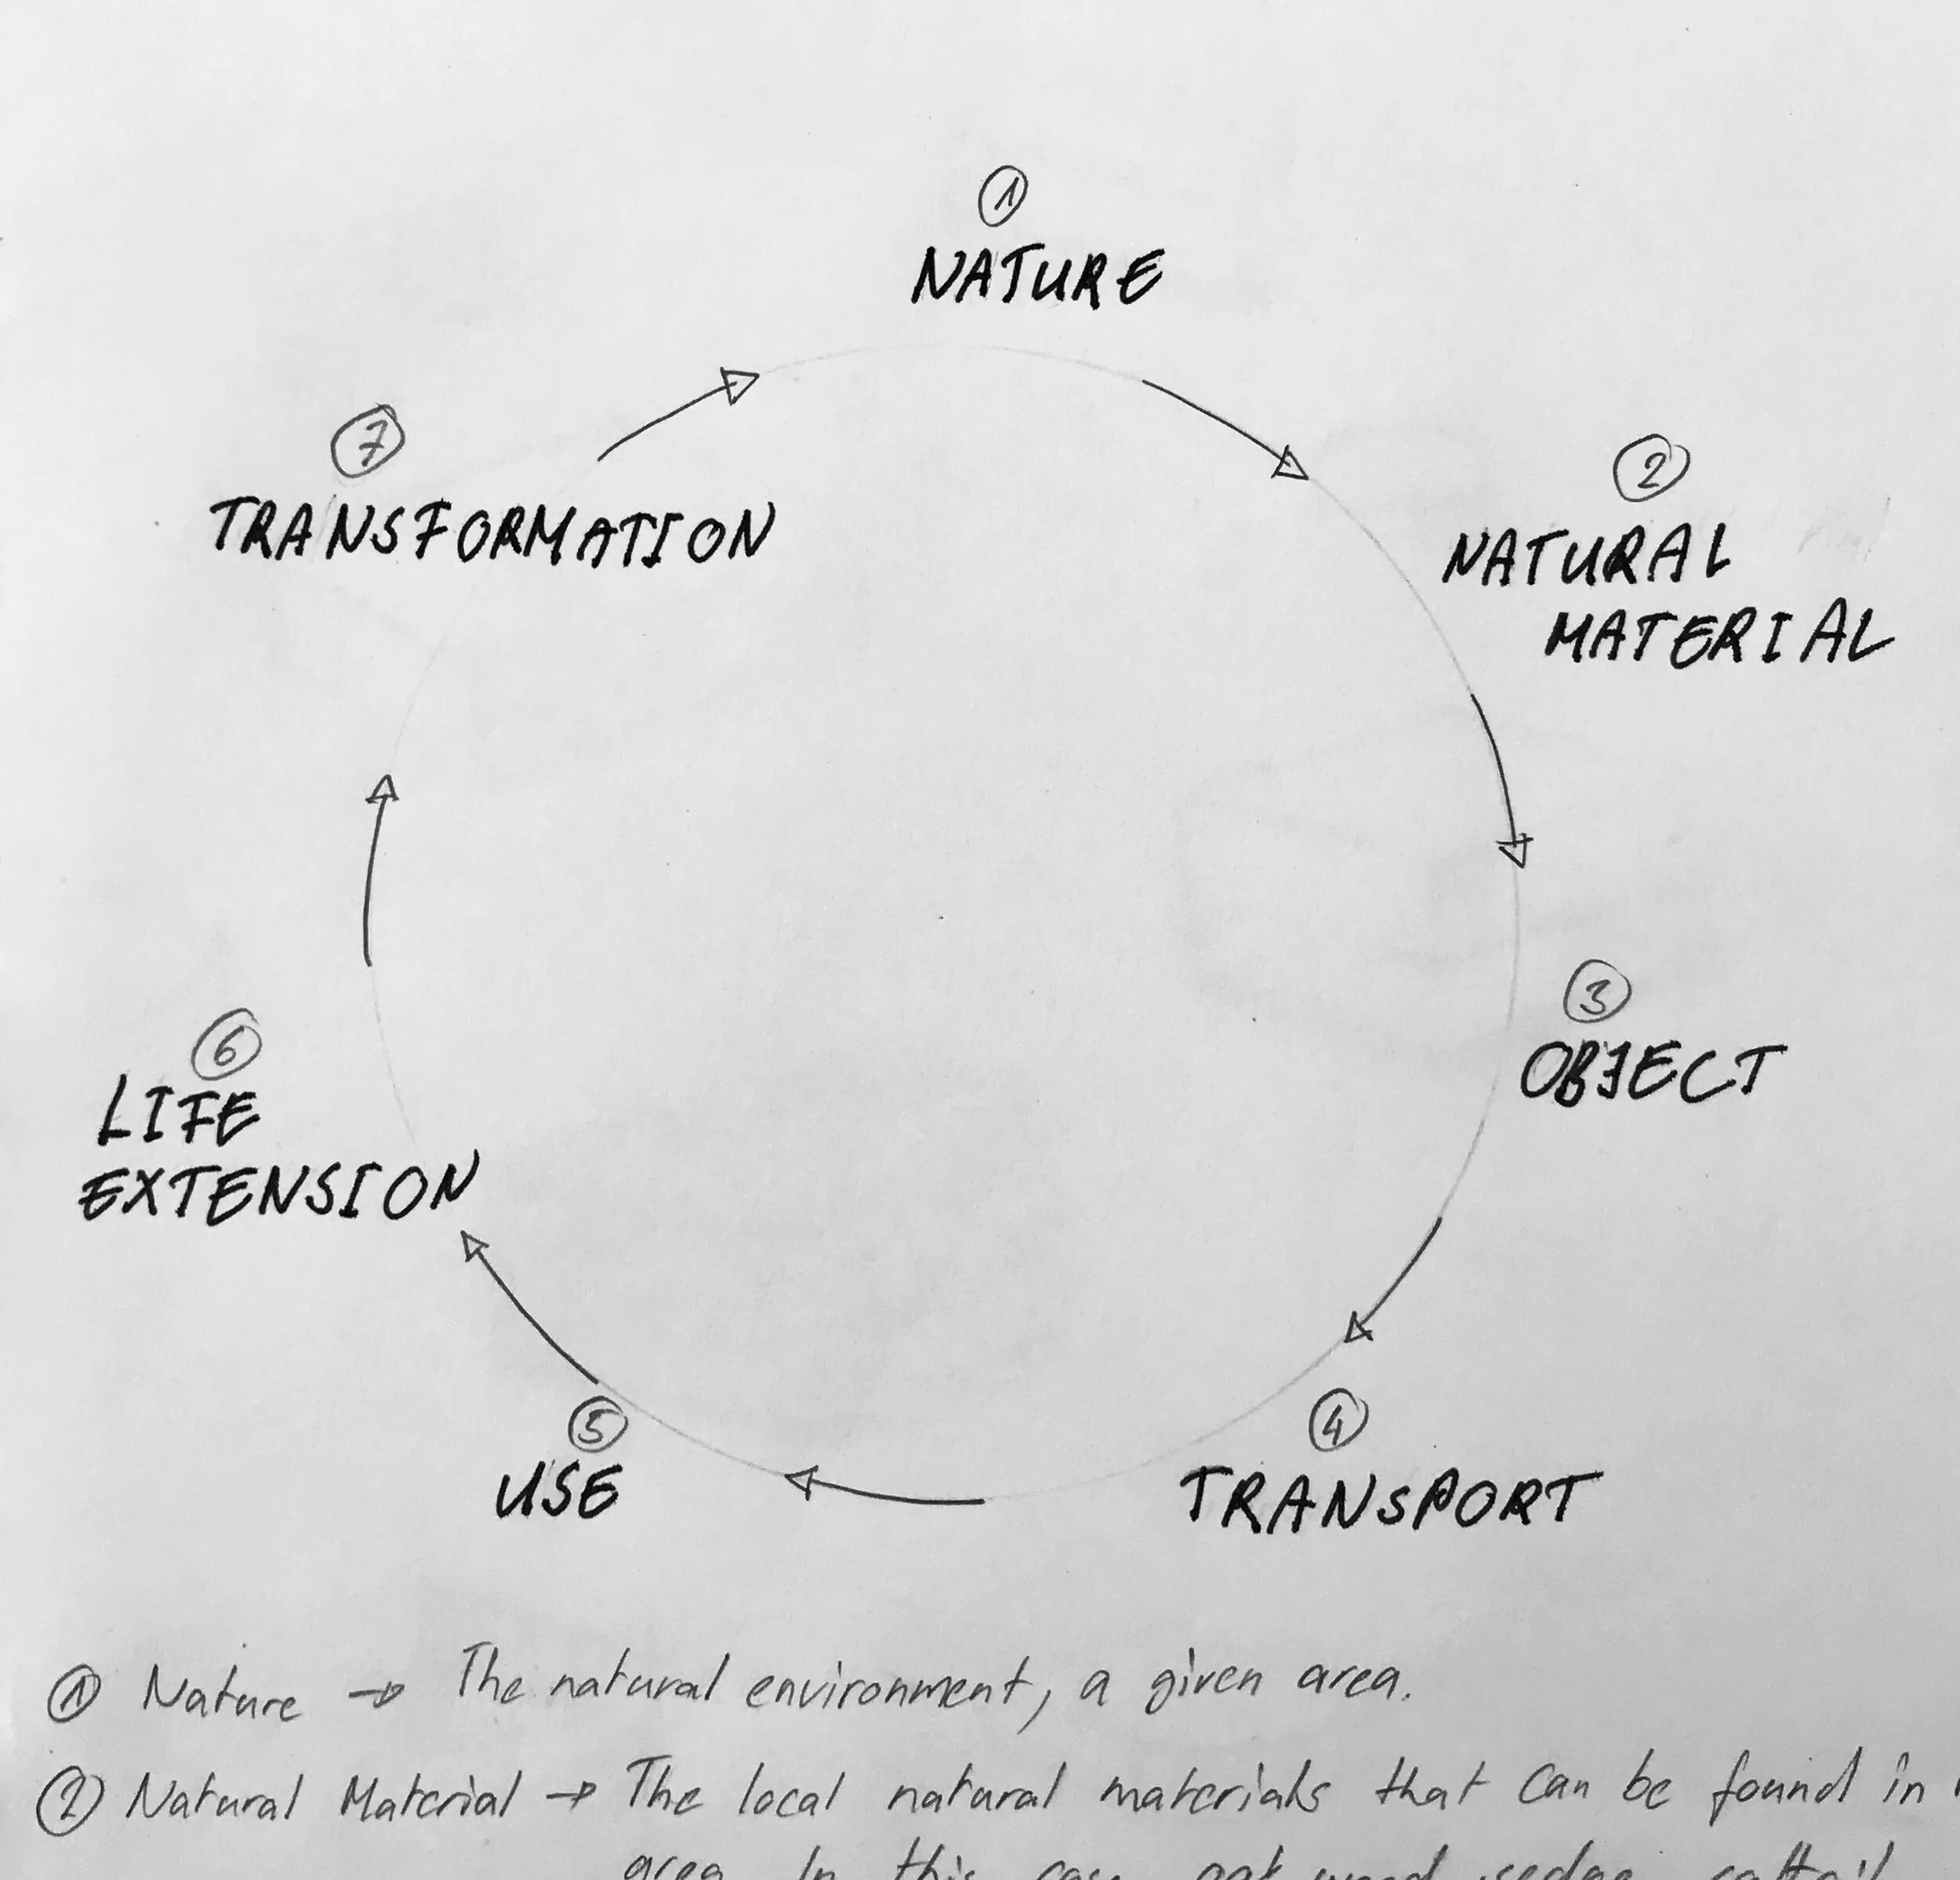 ①
NATURE
②
NATURAL
MATERIAL
③
OBJECT
④
TRANSPORT
⑤
USE
⑥
LIFE
EXTENSION
⑦
TRANSFORMATION
① Nature → The natural environment, a given area.
② Natural Material → The local natural materials that can be found in
area. In this case oak wood, sedge, cattail